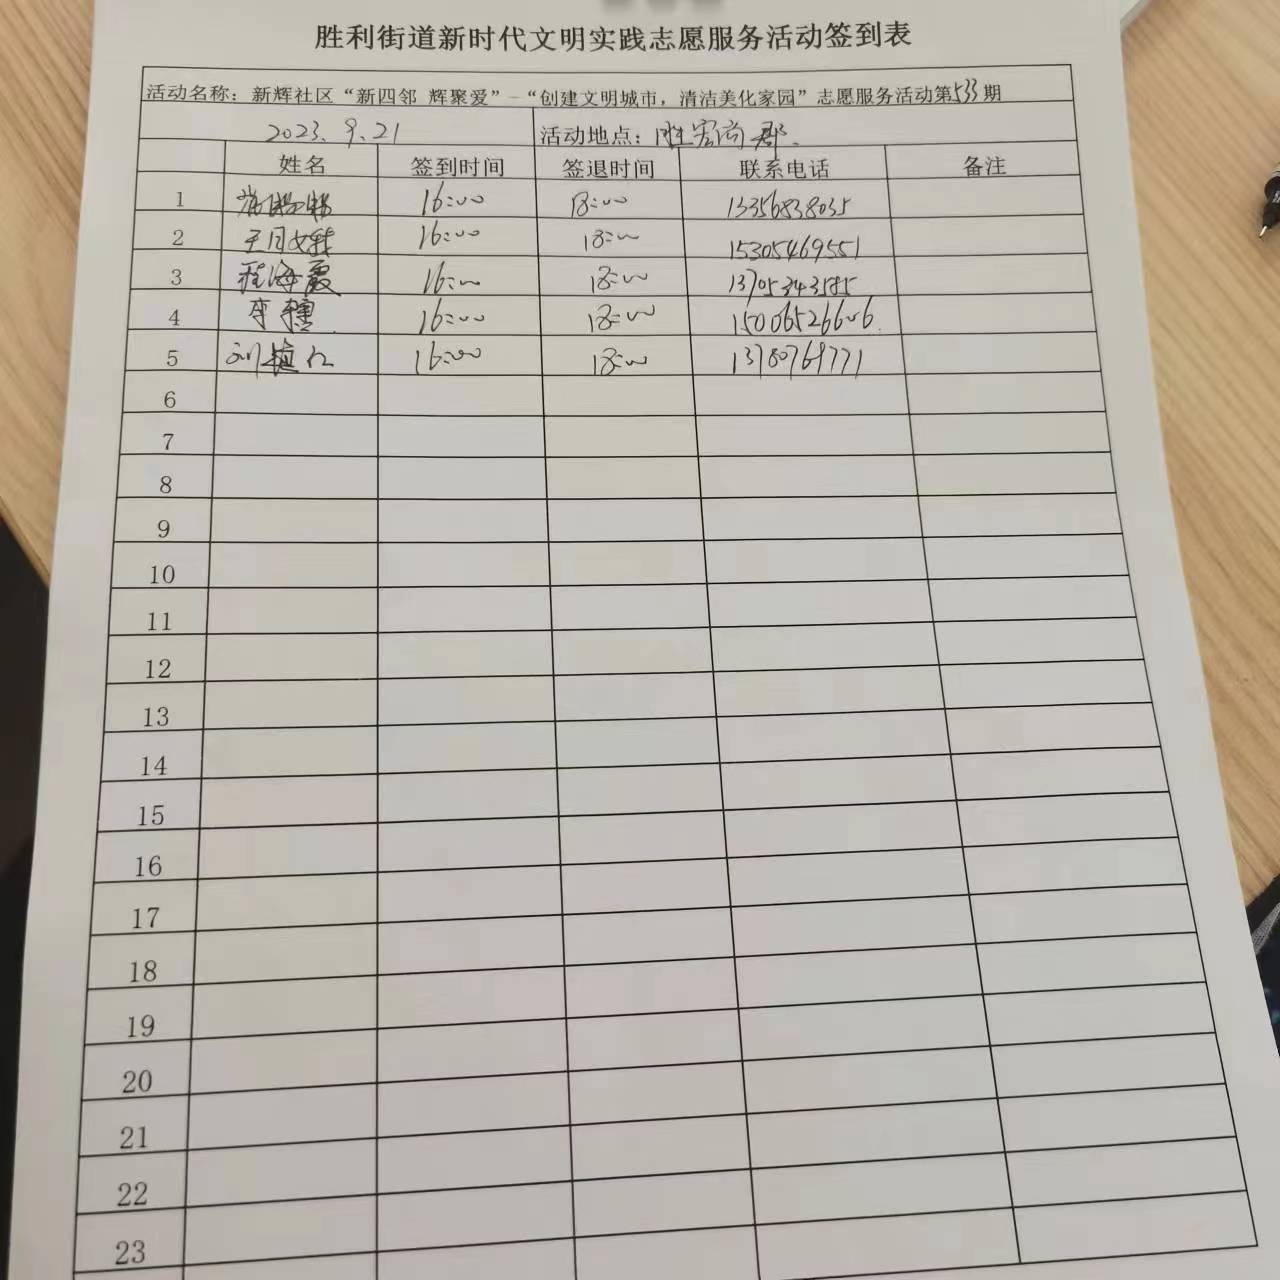 胜利街道新时代文明实践志愿服务活动签到表
活动名称：新辉社区“新四邻 辉聚爱”-“创建文明城市，清洁美化家园”志愿服务活动第533期
2023.9.21 活动地点：胜宏尚郡.
姓名 签到时间 签退时间 联系电话 备注
1 16:00 18:00 13356838035
2 王月娥 16:00 18:00 15305469551
3 程海霞 16:00 18:00 13705343585
4 李 16:00 18:00 15006526606
5 刘 16:00 18:00 13780769771
6
7
8
9
10
11
12
13
14
15
16
17
18
19
20
21
22
23